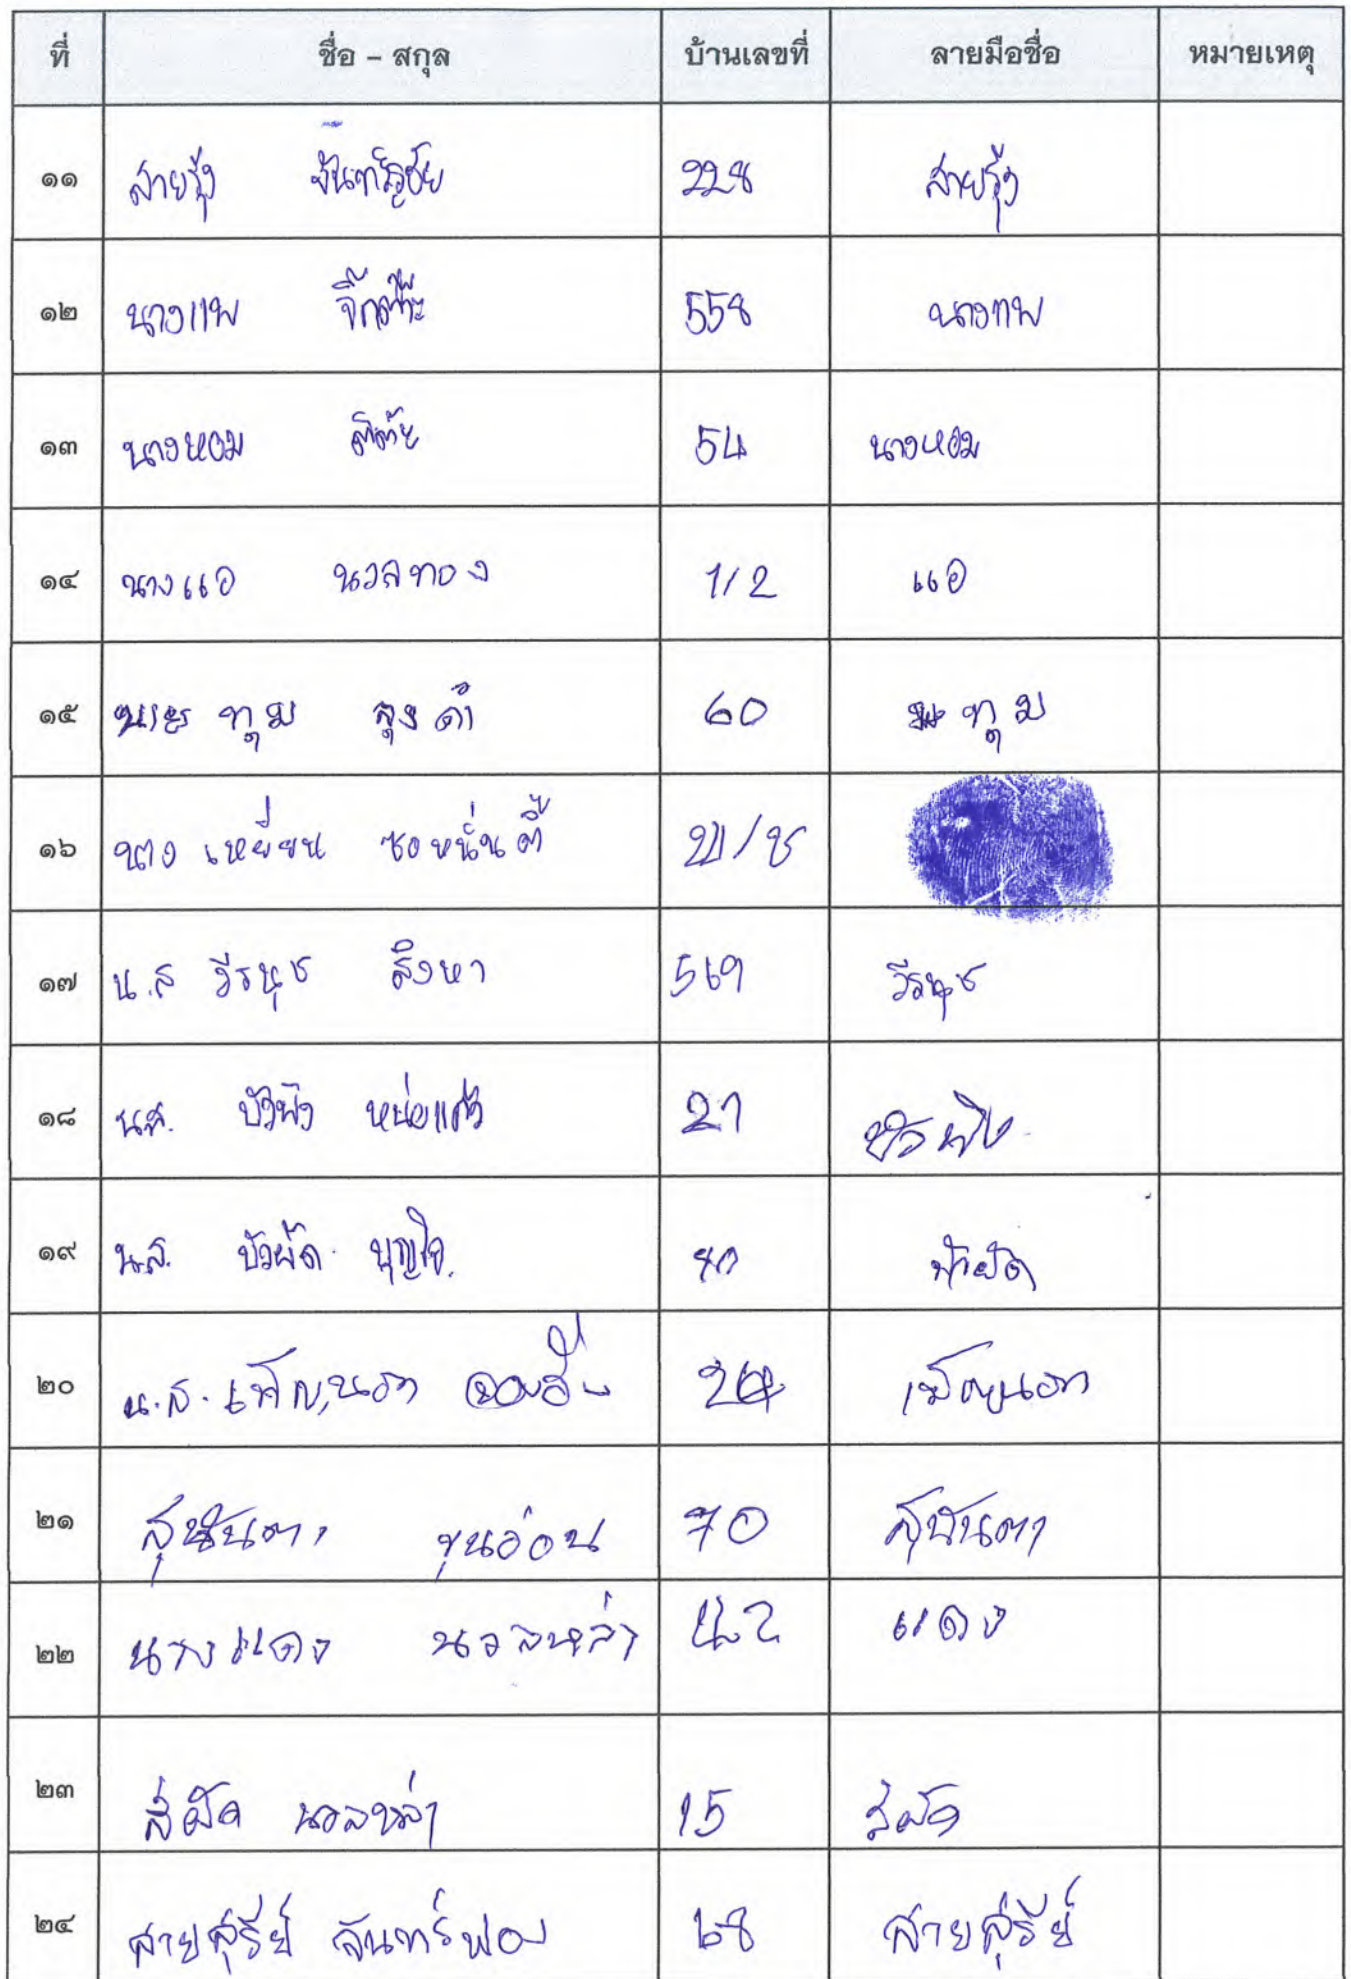 ที่ ชื่อ - สกุล บ้านเลขที่ ลายมือชื่อ หมายเหตุ
๑๑ สายรุ้ง 228 สายรุ้ง
๑๒ นางแพ 558 นางแพ
๑๓ นางหอม 54 นางหอม
๑๔ นางแอ นวลทอง 1/2 แอ
๑๕ นาย ทูม ลุงดำ 60 ทูม
๑๖ นาง เหยี่ยน ซอหนั่นตี๊
๑๗ น.ส วีรนุช สิงหา 569 วีรนุช
๑๘ นส. บัวผิง หน่อแก้ว 27 บัวผิง
๑๙ น.ส. บัวผัด บุญใจ
๒๐ น.ส. เพ็ญนภา เพ็ญนภา
๒๑ สุนันตา ขุนอ่อน 70 สุนันตา
๒๒ นางแดง นวลหล้า 42 แดง
๒๓ นวลหล่า 15
๒๔ สายสุรีย์ จันทร์ฟอง 68 สายสุรีย์